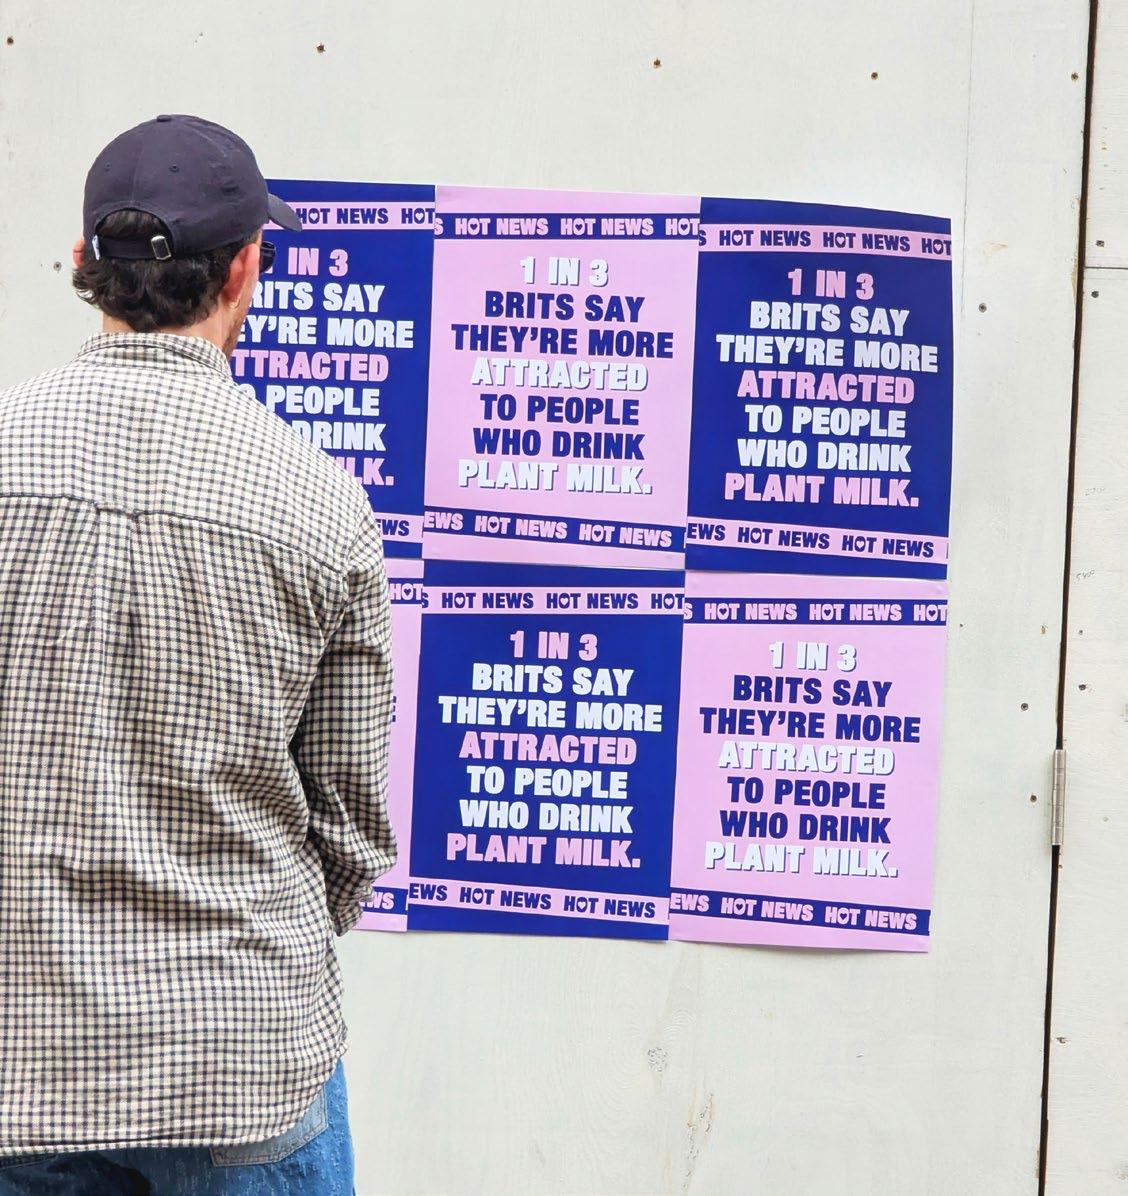 HOT NEWS HOT
IN 3
SAY
MORE
PEOPLE
DRINK
HOT NEWS HOT NEWS HOT
1 IN 3
BRITS SAY
THEY'RE MORE
ATTRACTED
TO PEOPLE
WHO DRINK
PLANT MILK.
HOT NEWS HOT NEWS
HOT NEWS HOT NEWS HOT
1 IN 3
BRITS SAY
THEY'RE MORE
ATTRACTED
TO PEOPLE
WHO DRINK
PLANT MILK.
HOT NEWS HOT NEWS
HOT
HOT NEWS HOT NEWS HOT
1 IN 3
BRITS SAY
THEY'RE MORE
ATTRACTED
TO PEOPLE
WHO DRINK
PLANT MILK.
HOT NEWS HOT NEWS
HOT NEWS HOT NEWS HOT
1 IN 3
BRITS SAY
THEY'RE MORE
ATTRACTED
TO PEOPLE
WHO DRINK
PLANT MILK.
HOT NEWS HOT NEWS